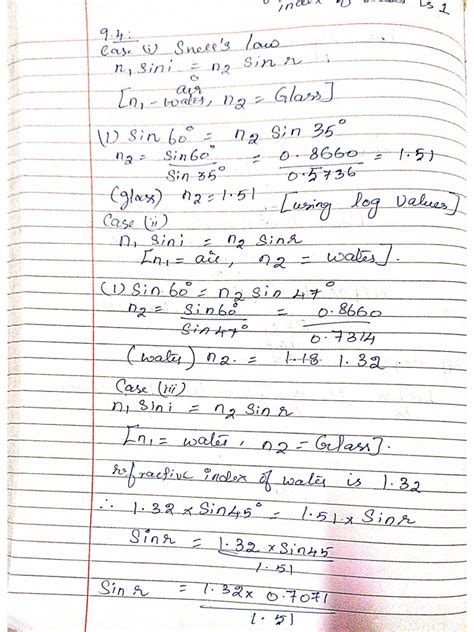 index of is 1
9.4:
Case (i) Snell's law
n₁ sin i = n₂ sin r
air
[n₁ - water, n₂ = Glass]
(1) Sin 60° = n₂ Sin 35°
n₂ = Sin 60° / Sin 35° = 0.8660 / 0.5736 = 1.51
(glass) n₂ = 1.51 [using log values]
Case (ii)
n₁ sin i = n₂ sin r
[n₁ = air, n₂ = water].
(1) Sin 60° = n₂ Sin 47°
n₂ = Sin 60° / Sin 47° = 0.8660 / 0.7314
(water) n₂ = 1.18 1.32
Case (iii)
n₁ sin i = n₂ sin r
[n₁ = water, n₂ = Glass].
refractive index of water is 1.32
∴ 1.32 × Sin 45° = 1.51 × Sin r
Sin r = 1.32 × Sin 45 / 1.51
Sin r = 1.32 × 0.7071 / 1.51